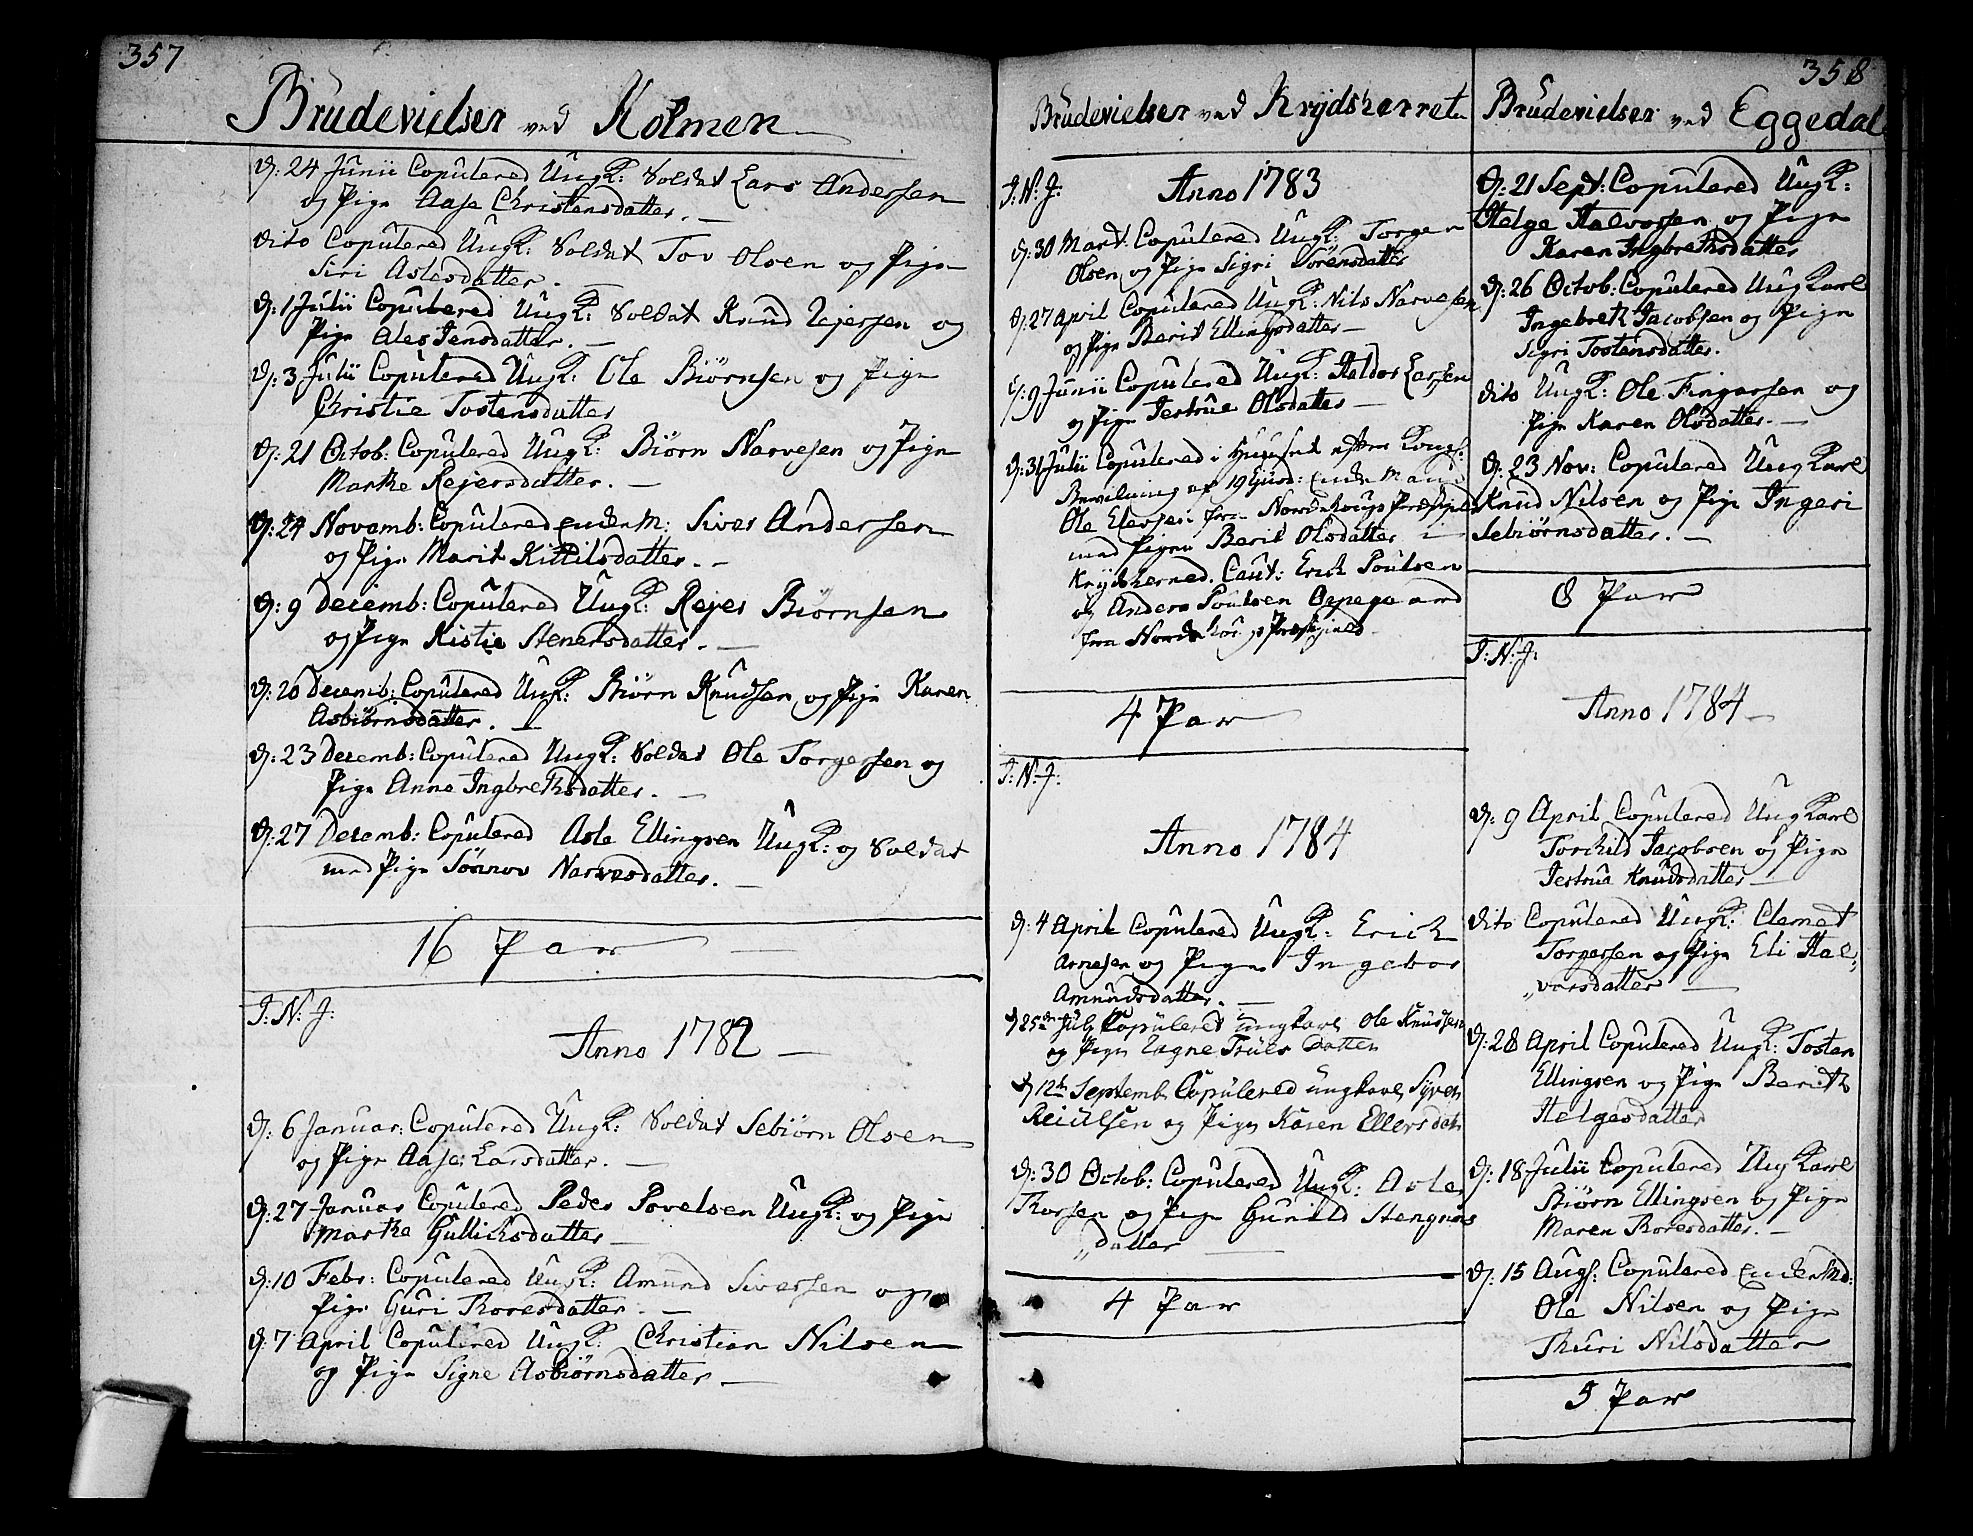 357
Brudevielser ved Holmen
d: 24 Junii Copulered Ungk: Soldat Lars Andersen
og Pige Aase Christensdatter.
dito Copulered Ungk: Soldat Tov Olsen og Pige
Siri Aslesdatter.
d: 1 Julii Copulered Ungk: Soldat Knud Rejersen og
Pige Ales Jensdatter.
d: 3 Julii Copulered Ungk: Ole Biørnsen og Pige
Christie Tostensdatter
d: 21 Octob: Copulered Ungk: Biørn Narvesen og Pige
Marthe Rejersdatter.
d: 24 Novemb: Copulered Enkem: Siver Andersen
og Pige Marit Kittilsdatter.
d: 9 Decemb: Copulered Ungk: Rejer Biørnsen
og Pige Kistie Stenersdatter.
d: 20 Decemb: Copulered Ungk: Biørn Knudsen og Pige Karen
Asbiørnsdatter.
d: 23 Decemb: Copulered Ungk: Soldat Ole Torgersen og
Pige Anne Ingbrethsdatter.
d: 27 Decemb: Copulered Asle Ellingsen Ungk: og Soldat
med Pige Sönnov Narvesdatter.
16 Par
I: N: J:
Anno 1782
d: 6 Januar: Copulered Ungk: Soldat Sebiørn Olsen
og Pige Aase Larsdatter.
d: 27 Januar Copulered Peder Povelsen Ungk: og Pige
Marthe Gullichsdatter
d: 10 Febr: Copulered Ungk: Amund Siversen og
Pige Guri Thoresdatter.
d: 7 April Copulered Ungk: Christian Nilsen
og Pige Signe Asbiørnsdatter
Brudevielser ved Krydsherret
I: N: J:
Anno 1783
d: 30 Mart: Copulered Ungk: Torger
Olsen og Pige Sigri Sørensdatter
d: 27 April Copulered Ungk: Nils Narvesen
og Pige Berit Ellingsdatter
d: 9 Junii Copulered Ungk: Haldor Larsen
og Pige Jertrue Olsdatter
d: 31 Julii Copulered i Huuset efter Kongl:
Bevilning af 19 Enkemand
Ole fra Norderhougs Præstegield
med Pigen Berit Olsdatter i
Krydsherred. Caut: Erich Poulsen
og Anders Poulsen
fra Norderhougs Præstegield
4 Par
I: N: J:
Anno 1784
d: 4 April Copulered Ungk: Erich
Arnesen og Pige Ingebor
Amundsdatter.
d 25de July Copulered ungkarl Ole Knudsen
og Pige Ragne Truls Datter
d 12te Septemb Copulered ungkarl Syver
og Pige Karen Ellersdatr
d: 30 Octob: Copulered Ungk: Asle
Thorsen og Pige Gunild Stengrims
datter
4 Par
358
Brudevielser ved Eggedal
d: 21 Sept: Copulered Ungk:
Helge Halvorsen og Pige
Karen Ingbrethsdatter
d: 26 Octob: Copulered Ungkarl
Ingebreth Jacobsen og Pige
Sigri Tostensdatter.
dito Ungk: Ole Fingarsen og
Pige Karen Olsdatter.
d: 23 Nov: Copulered Ungkarl
Knud Nilsen og Pige Ingeri
Sebiørnsdatter.
8 Par
I: N: J:
Anno 1784
d: 9 April Copulered Ungkarl
Torchild Jacobsen og Pige
Jertrue Knudsdatter
dito Copulered Ungk: Clemet
Torgersen og Pige Eli Hal„
„vorsdatter
d: 28 April Copulered Ungk: Tosten
Ellingsen og Pige Berith
Helgesdatter
d: 18 Julii Copulered Ungkarl
Biørn Ellingsen og Pige
Maren Thoresdatter.
d: 15 Augs: Copulered Enkemd:
Ole Nilsen og Pige
Thuri Nilsdatter
5 Par